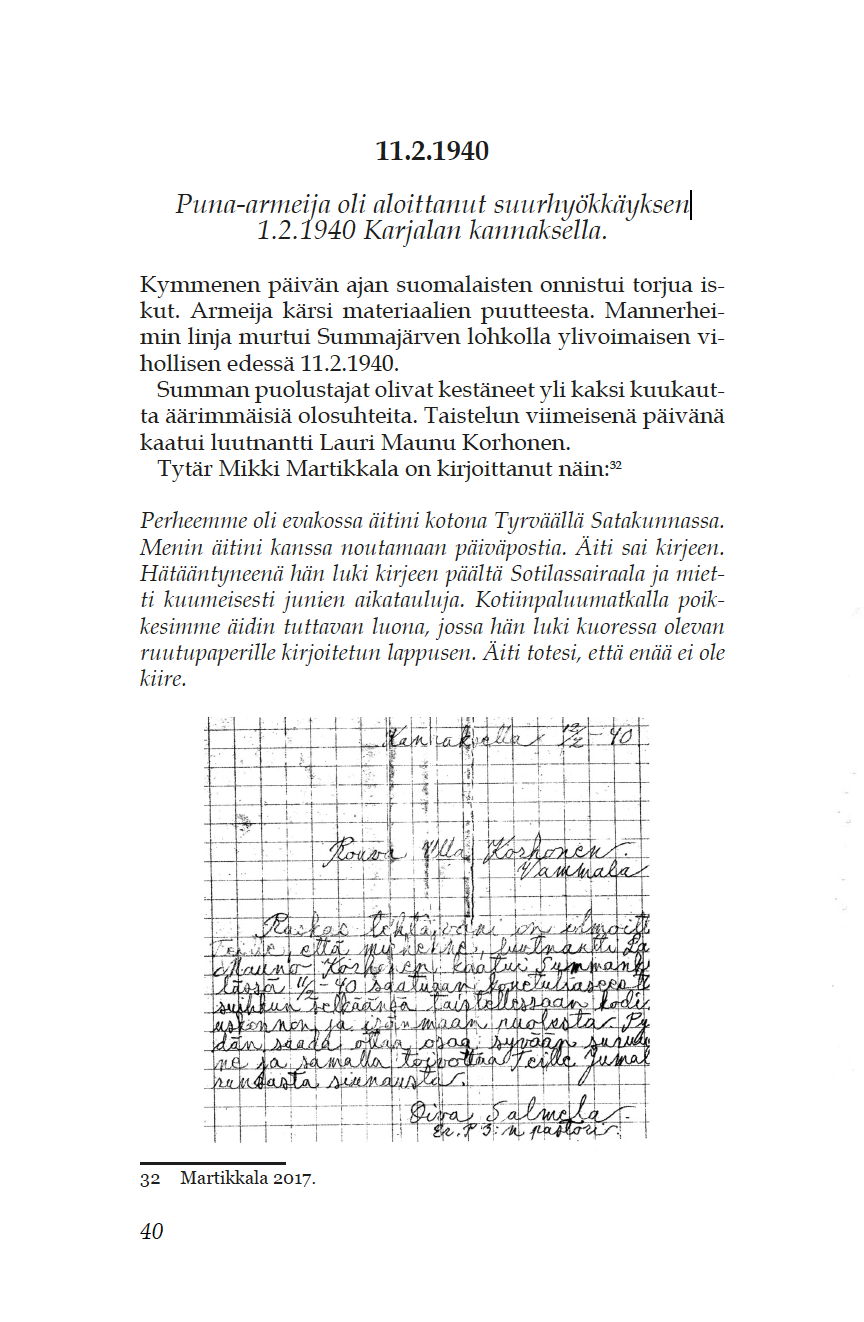 11.2.1940
Puna-armeija oli aloittanut suurhyökkäyksen
1.2.1940 Karjalan kannaksella.
Kymmenen päivän ajan suomalaisten onnistui torjua is-
kut. Armeija kärsi materiaalien puutteesta. Mannerhei-
min linja murtui Summajärven lohkolla ylivoimaisen vi-
hollisen edessä 11.2.1940.
Summan puolustajat olivat kestäneet yli kaksi kuukaut-
ta äärimmäisiä olosuhteita. Taistelun viimeisenä päivänä
kaatui luutnantti Lauri Maunu Korhonen.
Tytär Mikki Martikkala on kirjoittanut näin:32
Perheemme oli evakossa äitini kotona Tyrväällä Satakunnassa.
Menin äitini kanssa noutamaan päiväpostia. Äiti sai kirjeen.
Hätääntyneenä hän luki kirjeen päältä Sotilassairaala ja miet-
ti kuumeisesti junien aikatauluja. Kotiinpaluumatkalla poik-
kesimme äidin tuttavan luona, jossa hän luki kuoressa olevan
ruutupaperille kirjoitetun lappusen. Äiti totesi, että enää ei ole
kiire.
Kannaksella 12/2 - 40
Rouva Ylla Korhonen.
Vammala
Raskas tehtäväni on ilmoitt
Teille, että miehenne, luutnantti La
Mauno Korhonen kaatui Summank
lässä 11/2 - 40 saatuaan konetuliaseest
suihkun selkäänsä taistellessaan kodi
uskonnon ja isänmaan puolesta. Py
dän saada ottaa osaa syvään suruu
ne ja samalla toivottaa Teille Jumal
runsasta siunausta.
Oiva Salmela
Er. P 3:n pastori.
32 Martikkala 2017.
40